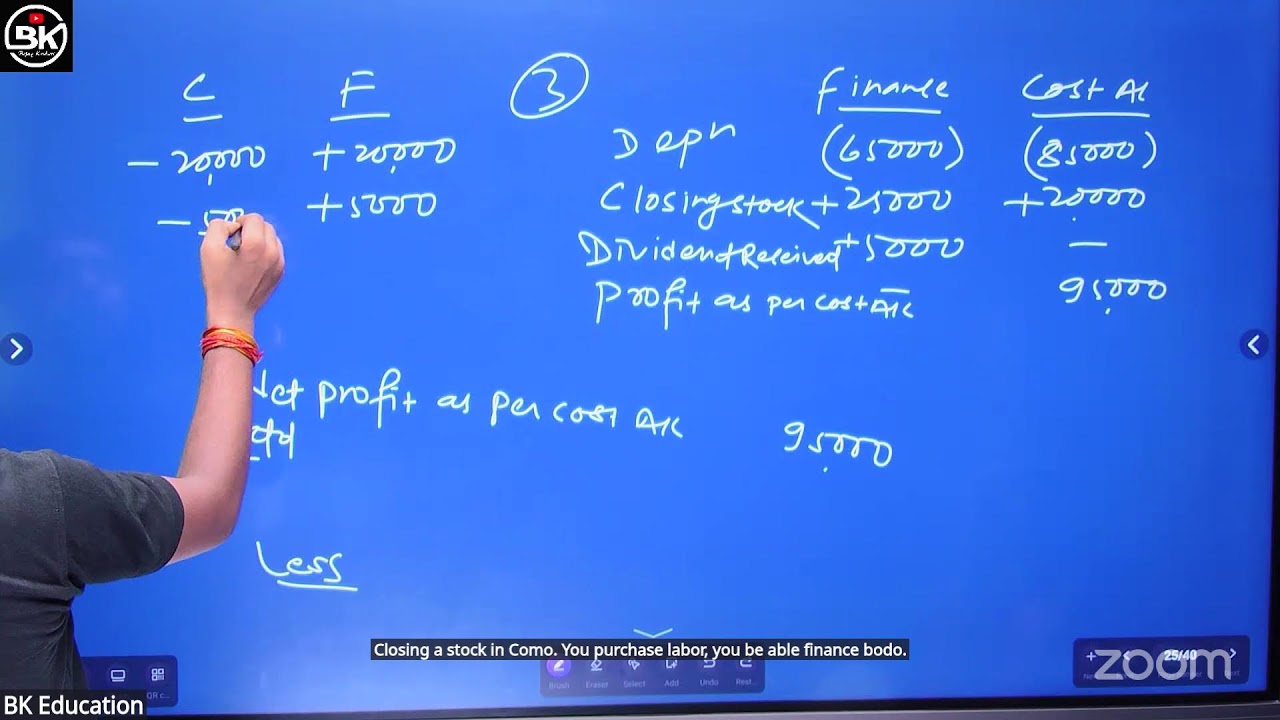 BK
C F
-20,000 +20,000
-500 +5000
3
Finance Cost Ac
Depn (65000) (85000)
Closing stock +25000 +20,000
Dividend Received +5000 —
Profit as per cost A/c 95,000
profit as per cost A/c 95,000
Less
Closing a stock in Como. You purchase labor, you be able finance bodo.
Brush Eraser Select Add Undo Rest...
25/40
zoom
BK Education